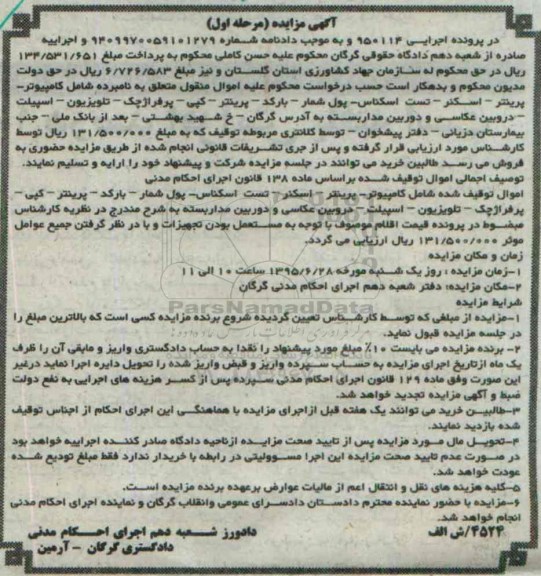 آگهی مزایده (مرحله اول)
در پرونده اجرایی ۹۵۰۱۱۴ و به موجب دادنامه شماره ۹۴۰۹۹۷۰۰۵۹۱۰۱۲۷۹ و اجراییه
صادره از شعبه دهم دادگاه حقوقی گرگان محکوم علیه حسن کاملی محکوم به پرداخت مبلغ ۱۳۴/۵۳۱/۶۵۱
ریال در حق محکوم له سازمان جهاد کشاورزی استان گلستان و نیز مبلغ ۶/۷۲۶/۵۸۳ ریال در حق دولت
مدیون محکوم و بدهکار است حسب درخواست محکوم علیه اموال منقول متعلق به نامبرده شامل کامپیوتر-
پرینتر – اسکنر – تست اسکناس- پول شمار – بارکد – پرینتر – کپی – پرفراژچک – تلویزیون – اسپیلت
–دروبین عکاسی و دوربین مداربسته به آدرس گرگان – خ شهید بهشتی – بعد از بانک ملی – جنب
بیمارستان دزیانی – دفتر پیشخوان – توسط کلانتری مربوطه توقیف که به مبلغ ۱۳۱/۵۰۰/۰۰۰ ریال توسط
کارشناس مورد ارزیابی قرار گرفته و پس از جری تشریفات قانونی انجام شده از طریق مزایده حضوری به
فروش می رسد طالبین خرید می توانند در جلسه مزایده شرکت و پیشنهاد خود را ارایه و تسلیم نمایند.
توصیف اجمالی اموال توقیف شده براساس ماده ۱۳۸ قانون اجرای احکام مدنی
اموال توقیف شده شامل کامپیوتر- پرینتر – اسکنر – تست اسکناس- پول شمار – بارکد – پرینتر – کپی –
پرفراژچک – تلویزیون – اسپیلت – دروبین عکاسی و دوربین مداربسته به شرح مندرج در نظریه کارشناس
مضبوط در پرونده قیمت اقلام موصوف با توجه به مستعمل بودن تجهیزات و با در نظر گرفتن جمیع عوامل
موثر ۱۳۱/۵۰۰/۰۰۰ ریال ارزیابی می گردد.
زمان و مکان مزایده
۱-زمان مزایده : روز یک شنبه مورخه ۱۳۹۵/۶/۲۸ ساعت ۱۰ الی ۱۱
۲-مکان مزایده: دفتر شعبه دهم اجرای احکام مدنی گرگان
شرایط مزایده
۱-مزایده از مبلغی که توسط کارشناس تعیین گردیده شروع برنده مزایده کسی است که بالاترین مبلغ را
در جلسه مزایده قبول نماید.
۲- برنده مزایده می بایست ۱۰٪ مبلغ مورد پیشنهاد را نقدا به حساب دادگستری واریز و مابقی آن را ظرف
یک ماه ازتاریخ اجرای مزایده به حساب سپرده واریز و قبض واریز شده را تحویل دایره اجرا نماید درغیر
این صورت وفق ماده ۱۲۹ قانون اجرای احکام مدنی سپرده پس از کسر هزینه های اجرایی به نفع دولت
ضبط و آگهی مزایده تجدید خواهد شد.
۳-طالبین خرید می توانند یک هفته قبل ازاجرای مزایده با هماهنگی این اجرای احکام از اجناس توقیف
شده بازدید نمایند.
۴-تحویل مال مورد مزایده پس از تایید صحت مزایده ازناحیه دادگاه صادر کننده اجراییه خواهد بود
در صورت عدم تایید صحت مزایده این اجرا مسوولیتی در رابطه با خریدار ندارد فقط مبلغ تودیع شده
عودت خواهد شد.
۵-کلیه هزینه های نقل و انتقال اعم از مالیات عوارض برعهده برنده مزایده است.
۶-مزایده با حضور نماینده محترم دادستان دادسرای عمومی وانقلاب گرگان و نماینده اجرای احکام مدنی
انجام خواهد شد.
۴۵۲۴/ش الف
دادورز شعبه دهم اجرای احکام مدنی
دادگستری گرگان – آرمین
ParsNamadData